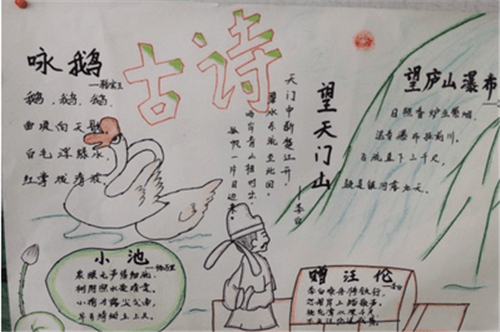 古诗
咏鹅
—骆宾王
鹅,鹅,鹅,
曲项向天歌
白毛浮绿水,
红掌拨清波
天门中断楚江开,
碧水东流至此回.
两岸青山相对出,
孤帆一片日边来.
望天门山
—李白
望庐山瀑布
日照香炉生紫烟,
遥看瀑布挂前川.
飞流直下三千尺,
疑是银河落九天.
小池
—杨万里
泉眼无声惜细流,
树阴照水爱晴柔.
小荷才露尖尖角,
早有蜻蜓立上头.
赠汪伦
李白乘舟将欲行,
忽闻岸上踏歌声.